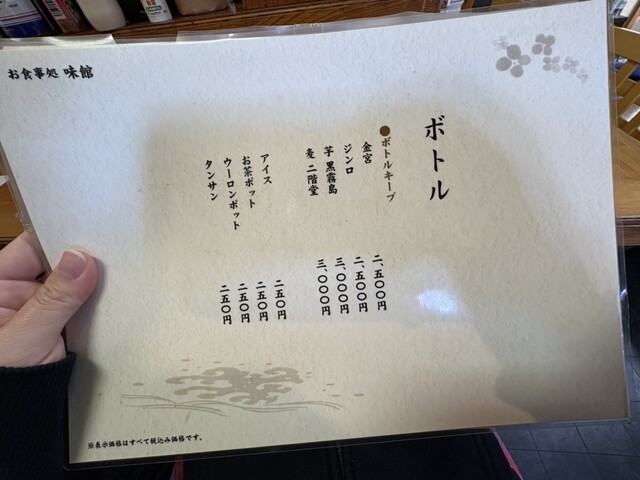 お食事処 味館
ボトル
●ボトルキープ
金宮 二、五〇〇円
ジンロ 二、五〇〇円
芋 黒霧島 三、〇〇〇円
麦 二階堂 三、〇〇〇円
アイス 二五〇円
お茶ポット 二五〇円
ウーロンポット 二五〇円
タンサン 二五〇円
※表示価格はすべて税込み価格です。